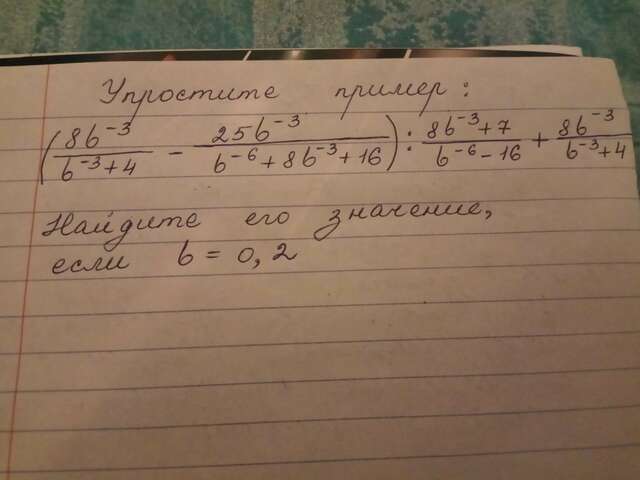 Упростите пример:
(8b⁻³/(b⁻³+4) - 25b⁻³/(b⁻⁶+8b⁻³+16)) : (8b⁻³+7)/(b⁻⁶-16) + 8b⁻³/(b⁻³+4)
Найдите его значение,
если b = 0,2